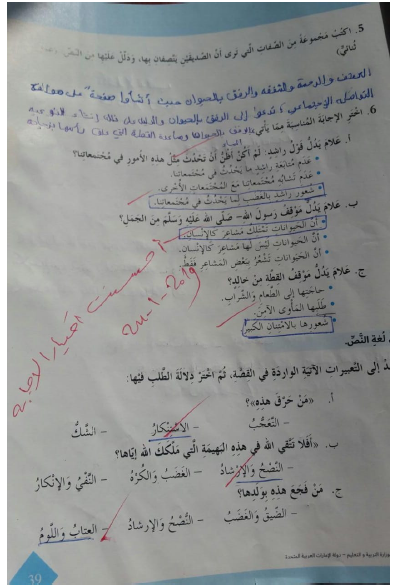 5. اكتُبْ مَجْموعةً مِنَ الصِّفاتِ الَّتي تَرى أنَّ الصَّديقَيْنِ يَتَّصِفانِ بها، ودَلِّلْ عَلَيْها مِنَ النَّصِّ.
ثُنائيٌّ)
والرحمة والشفقه والرفق بالحيوان حيث أنشأوا صفحة على مواقع
التواصل الإجتماعي تدعو إلى الرفق بالحيوان
6. اخْتَرِ الإجابةَ المُناسِبةَ مِمّا يَأْتي:
أ. عَلامَ يَدُلُّ قَوْلُ راشِدٍ: لَمْ أكُنْ أظُنُّ أنْ تَحْدُثَ مِثْلُ هذِهِ الأُمورِ في مُجْتَمَعاتِنا؟
• عَدَمِ مُتابَعةِ راشِدٍ ما يَحْدُثُ في مُجْتَمَعاتِنا.
• عَدَمِ تَشابُهِ مُجْتَمَعاتِنا مَعَ المُجْتَمَعاتِ الأُخْرى.
• شُعورِ راشِدٍ بِالغَضَبِ لِما يَحْدُثُ في مُجْتَمَعاتِنا.
ب. عَلامَ يَدُلُّ مَوْقِفُ رَسولِ اللهِ– صَلَّى اللهُ عَلَيْهِ وَسَلَّمَ مِنَ الجَمَلِ؟
• أنَّ الحَيَواناتِ تَمْتَلِكُ مَشاعِرَ كَالإنْسانِ.
• أنَّ الحَيَواناتِ لَيْسَ لَها مَشاعِرُ كَالإنْسانِ.
• أنَّ الحَيَواناتِ تَشْعُرُ بِبَعْضِ المَشاعِرِ فَقَطْ.
ج. عَلامَ يَدُلُّ مَوْقِفُ القِطَّةِ مِنْ خالِدٍ؟
• حاجَتِها إلى الطَّعامِ والشَّرابِ.
• طَلَبِها المَأْوى الآمِنَ.
• شُعورِها بِالامْتِنانِ الكَبيرِ.
أحسنت اختيار الاجابه
2019
لُغةُ النَّصِّ.
إلى التَّعْبيراتِ الآتِيةِ الوارِدةِ في القِصَّةِ، ثُمَّ اخْتَرْ دِلالةَ الطَّلَبِ فيها:
أ. «مَنْ حَرَّقَ هذِهِ»؟
– التَّعَجُّبُ – الاسْتِنْكارُ – الشَّكُّ
ب. «أفَلا تَتَّقي اللهَ في هذِهِ البَهيمةِ الَّتي مَلَّكَكَ اللهُ إيّاها»؟
– النُّصْحُ والإرْشادُ – الغَضَبُ والكُرْهُ – النَّفْيُ والإنْكارُ
ج. مَنْ فَجَعَ هذِهِ بِوَلَدِها؟
– الضِّيقُ والغَضَبُ – النُّصْحُ والإرشادُ – العِتابُ واللَّوْمُ
وزارة التربية و التعليم – دولة الإمارات العربية المتحدة
39